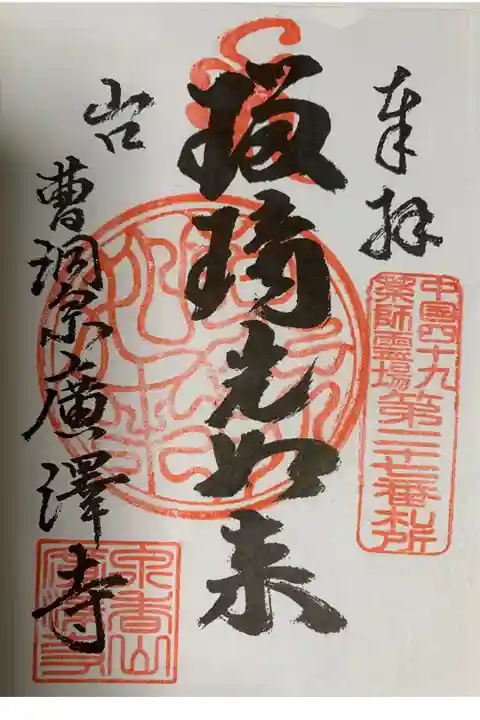 奉拝
中国四十九
薬師霊場第二十七番札所
瑠璃光如来
山口
曹洞宗廣澤寺
泉香山
廣澤寺